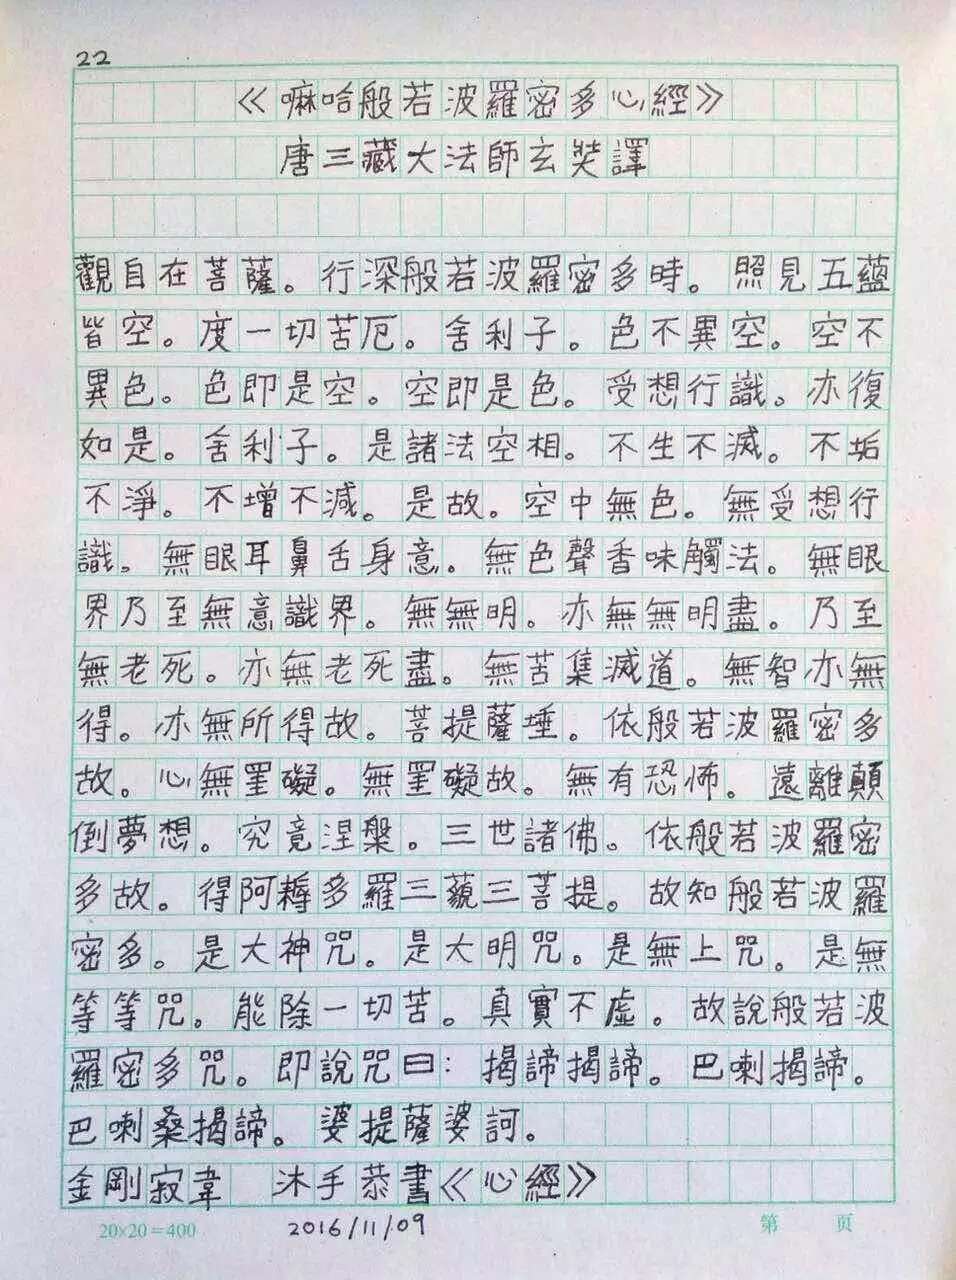 22
《嘛哈般若波羅密多心經》
唐三藏大法師玄奘譯
觀自在菩薩。行深般若波羅密多時。照見五蘊
皆空。度一切苦厄。舍利子。色不異空。空不
異色。色即是空。空即是色。受想行識。亦復
如是。舍利子。是諸法空相。不生不滅。不垢
不淨。不增不減。是故。空中無色。無受想行
識。無眼耳鼻舌身意。無色聲香味觸法。無眼
界乃至無意識界。無無明。亦無無明盡。乃至
無老死。亦無老死盡。無苦集滅道。無智亦無
得。亦無所得故。菩提薩埵。依般若波羅密多
故。心無罣礙。無罣礙故。無有恐怖。遠離顛
倒夢想。究竟涅槃。三世諸佛。依般若波羅密
多故。得阿耨多羅三藐三菩提。故知般若波羅
密多。是大神咒。是大明咒。是無上咒。是無
等等咒。能除一切苦。真實不虛。故說般若波
羅密多咒。即說咒曰：揭諦揭諦。巴喇揭諦。
巴喇桑揭諦。婆提薩婆訶。
金剛寂韋 沐手恭書《心經》
20×20=400 2016/11/09 第 页